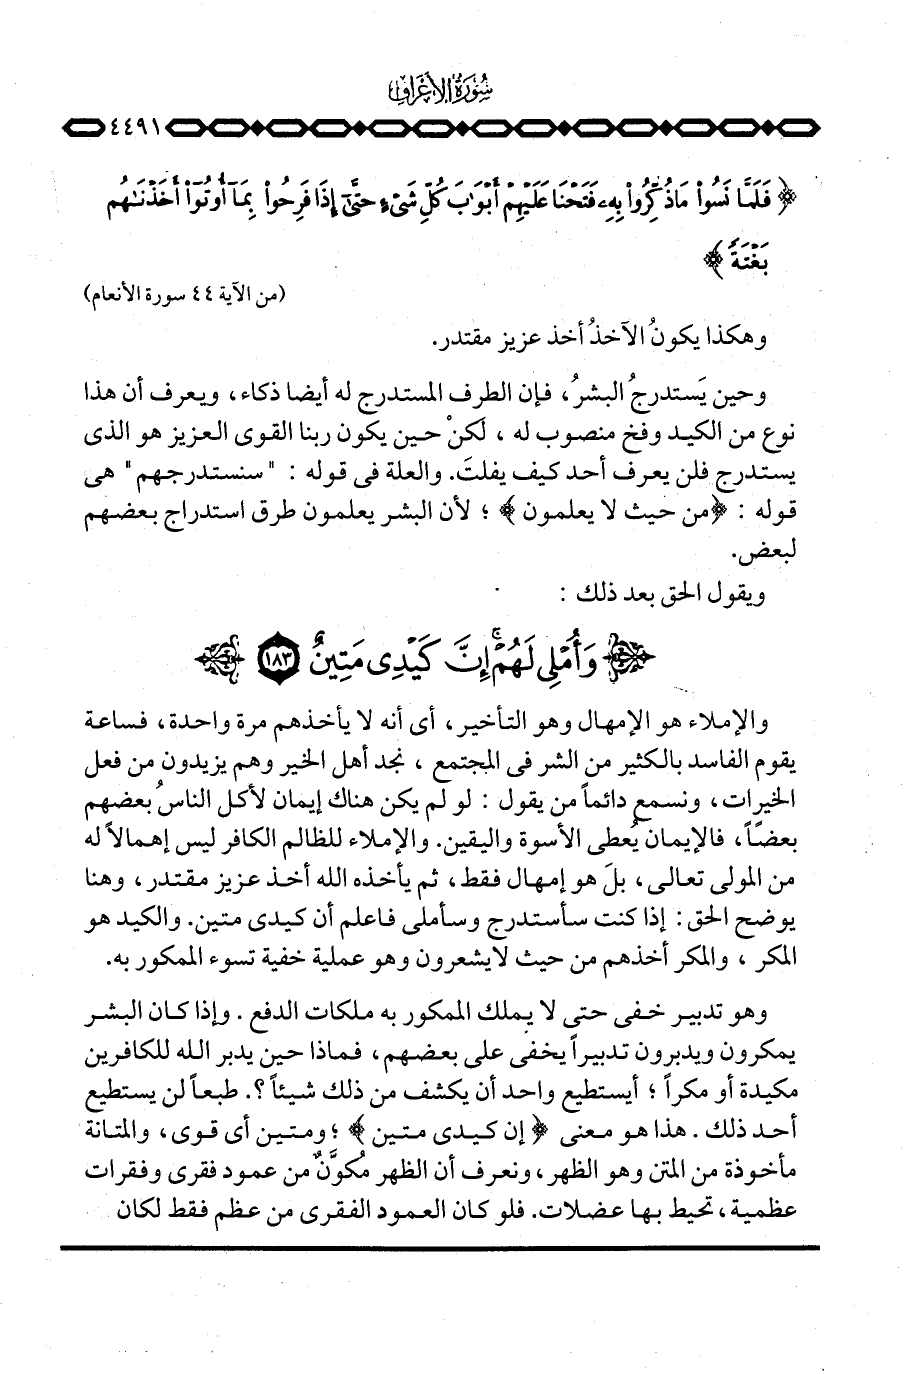 سُورَةُ الأَعْرَافِ
٤٤٩١
﴿ فَلَمَّا نَسُوا۟ مَا ذُكِّرُوا۟ بِهِۦ فَتَحْنَا عَلَيْهِمْ أَبْوَٰبَ كُلِّ شَىْءٍ حَتَّىٰٓ إِذَا فَرِحُوا۟ بِمَآ أُوتُوٓا۟ أَخَذْنَـٰهُم
بَغْتَةً ﴾
(من الآية ٤٤ سورة الأنعام)
وهكذا يكونُ الآخذُ أخذ عزيز مقتدر.
وحين يَستدرجُ البشرُ، فإن الطرف المستدرج له أيضا ذكاء، ويعرف أن هذا
نوع من الكيد وفخ منصوب له ، لكنْ حين يكون ربنا القوى العزيز هو الذى
يستدرج فلن يعرف أحد كيف يفلتَ. والعلة فى قوله : "سنستدرجهم" هى
قوله : ﴿من حيث لا يعلمون ﴾ ؛ لأن البشر يعلمون طرق استدراج بعضهم
لبعض.
ويقول الحق بعد ذلك :
وَأُمْلِى لَهُمْ ۚ إِنَّ كَيْدِى مَتِينٌ ١٨٣
والإملاء هو الإمهال وهو التأخير، أى أنه لا يأخذهم مرة واحدة، فساعة
يقوم الفاسد بالكثير من الشر فى المجتمع ، نجد أهل الخير وهم يزيدون من فعل
الخيرات، ونسمع دائماً من يقول : لو لم يكن هناك إيمان لأكل الناسُ بعضهم
بعضاً، فالإيمان يُعطى الأسوة واليقين. والإملاء للظالم الكافر ليس إهمالاً له
من المولى تعالى، بلَ هو إمهال فقط، ثم يأخذه الله أخذ عزيز مقتدر، وهنا
يوضح الحق: إذا كنت سأستدرج وسأملى فاعلم أن كيدى متين. والكيد هو
المكر ، والمكر أخذهم من حيث لايشعرون وهو عملية خفية تسوء الممكور به.
وهو تدبير خفى حتى لا يملك الممكور به ملكات الدفع . وإذا كان البشر
يمكرون ويدبرون تدبيراً يخفى على بعضهم، فماذا حين يدبر الله للكافرين
مكيدة أو مكراً ؛ أيستطيع واحد أن يكشف من ذلك شيئاً ؟. طبعاً لن يستطيع
أحد ذلك . هذا هو معنى ﴿ إن كيدى متين ﴾ ؛ ومتين أى قوى، والمتانة
مأخوذة من المتن وهو الظهر، ونعرف أن الظهر مُكوَّنٌ من عمود فقرى وفقرات
عظمية، تحيط بها عضلات. فلو كان العمود الفقرى من عظم فقط لكان